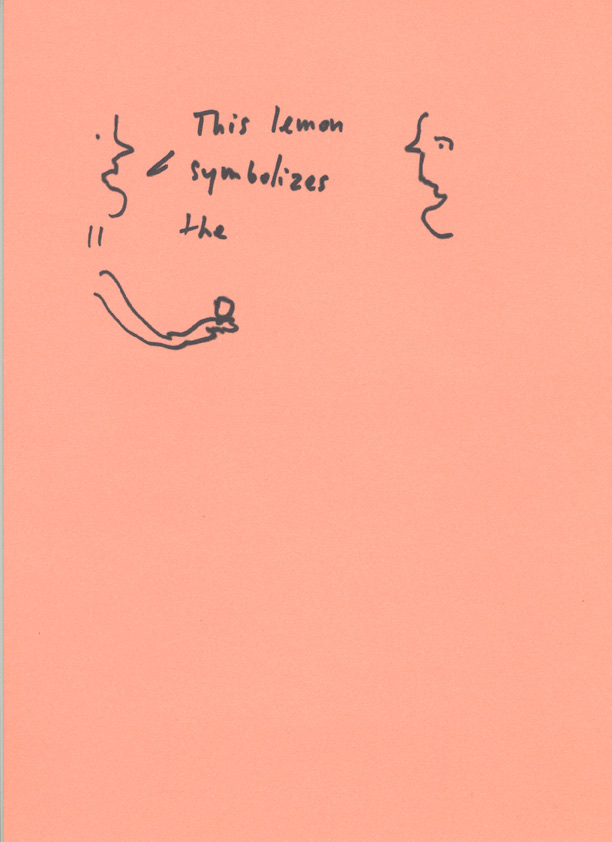 This lemon
symbolizes
the